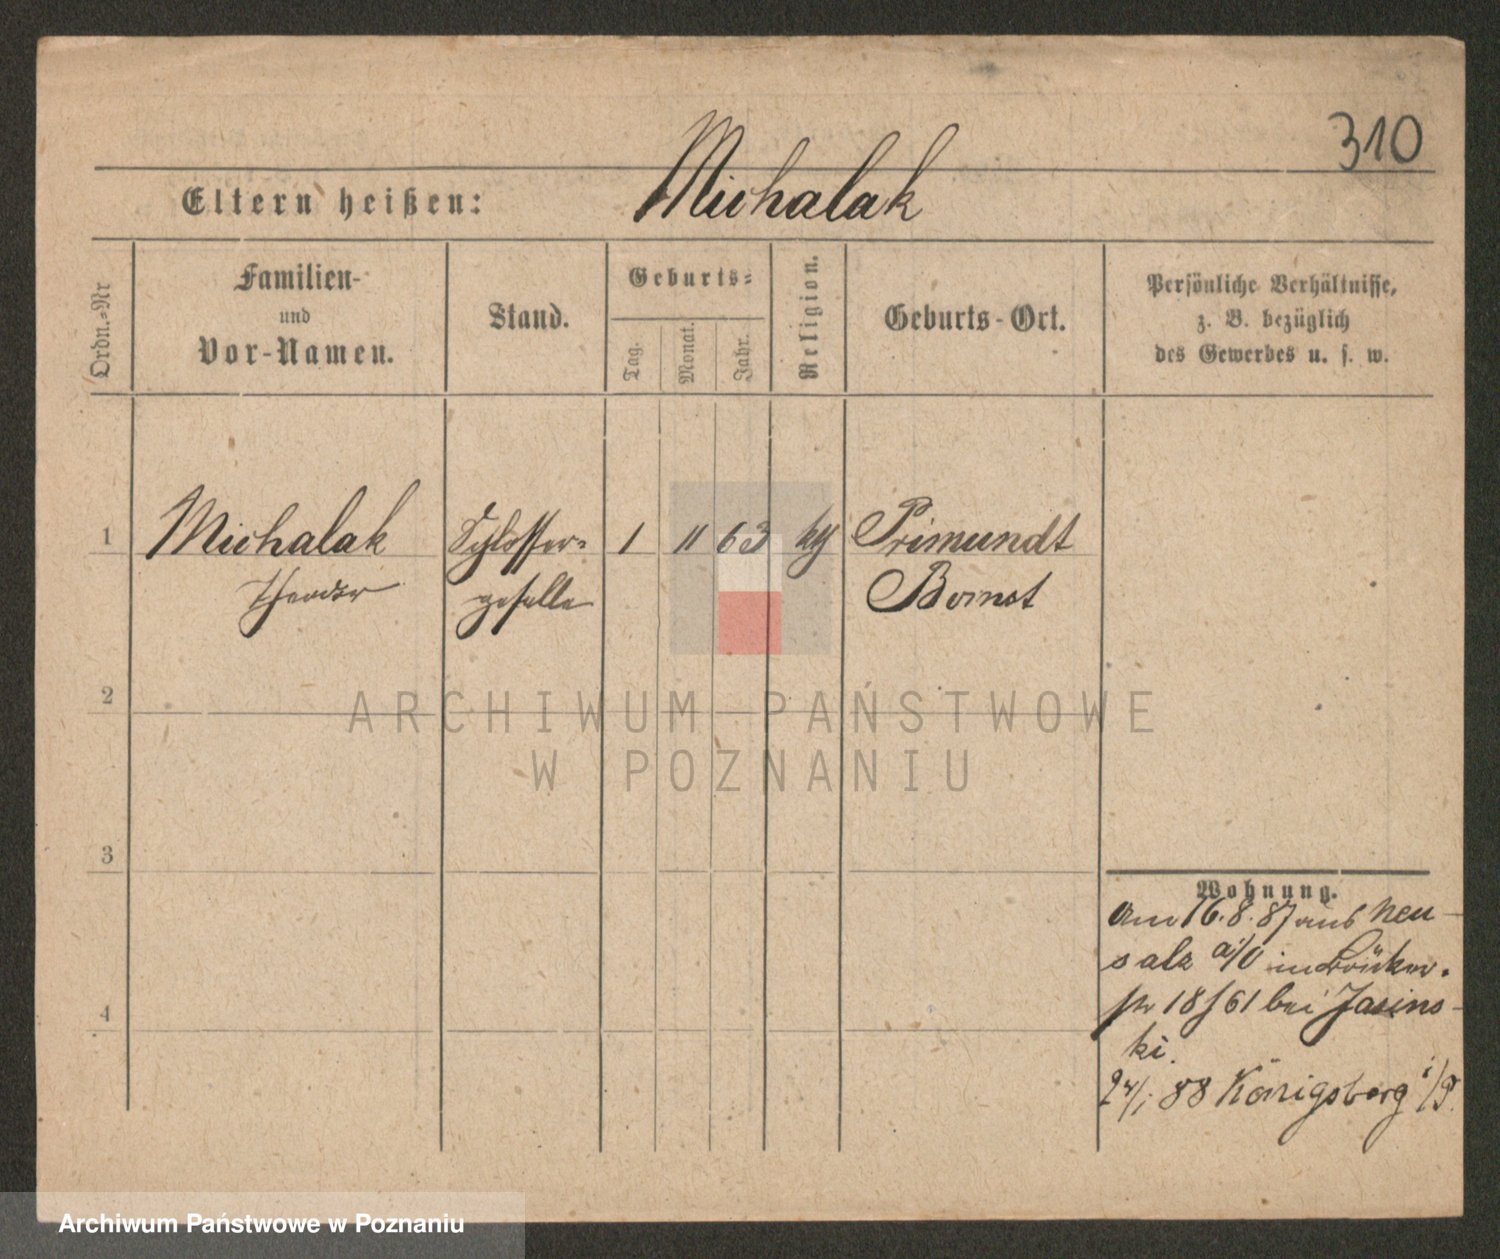 310
Eltern heißen: Michalak
Ordn.=Nr
Familien-
und
Vor-Namen.
Stand.
Geburts=
Tag.
Monat.
Jahr.
Religion.
Geburts-Ort.
Persönliche Verhältnisse,
z. B. bezüglich
des Gewerbes u. s. w.
1 Michalak Schlosser= 1 11 63 Primundt
Theodor geselle Bomst
2
ARCHIWUM PAŃSTWOWE
W POZNANIU
3
4
Wohnung.
Am 16.8.87 aus Neu-
salz a/O in
str 18/61 bei Jasins-
ki.
88 Königsberg i/P.
Archiwum Państwowe w Poznaniu